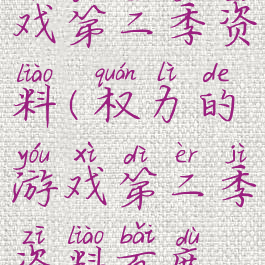 戏第二季资
liào quán lì de
料(权力的
yóu xì dì èr jì
游戏第二季
zī liào bǎi dù
资料百度